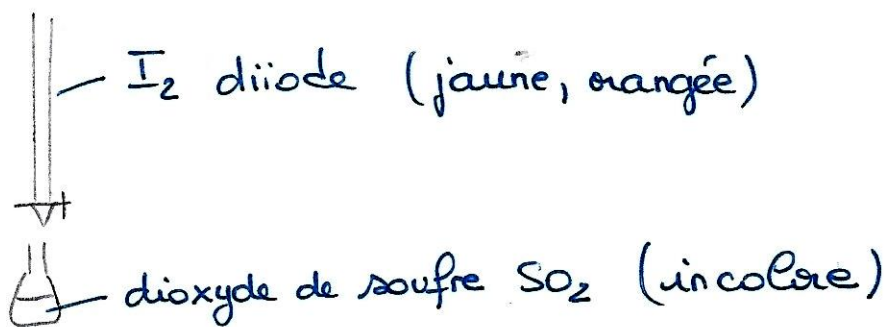 I₂ diiode (jaune, orangée)
dioxyde de soufre SO₂ (incolore)